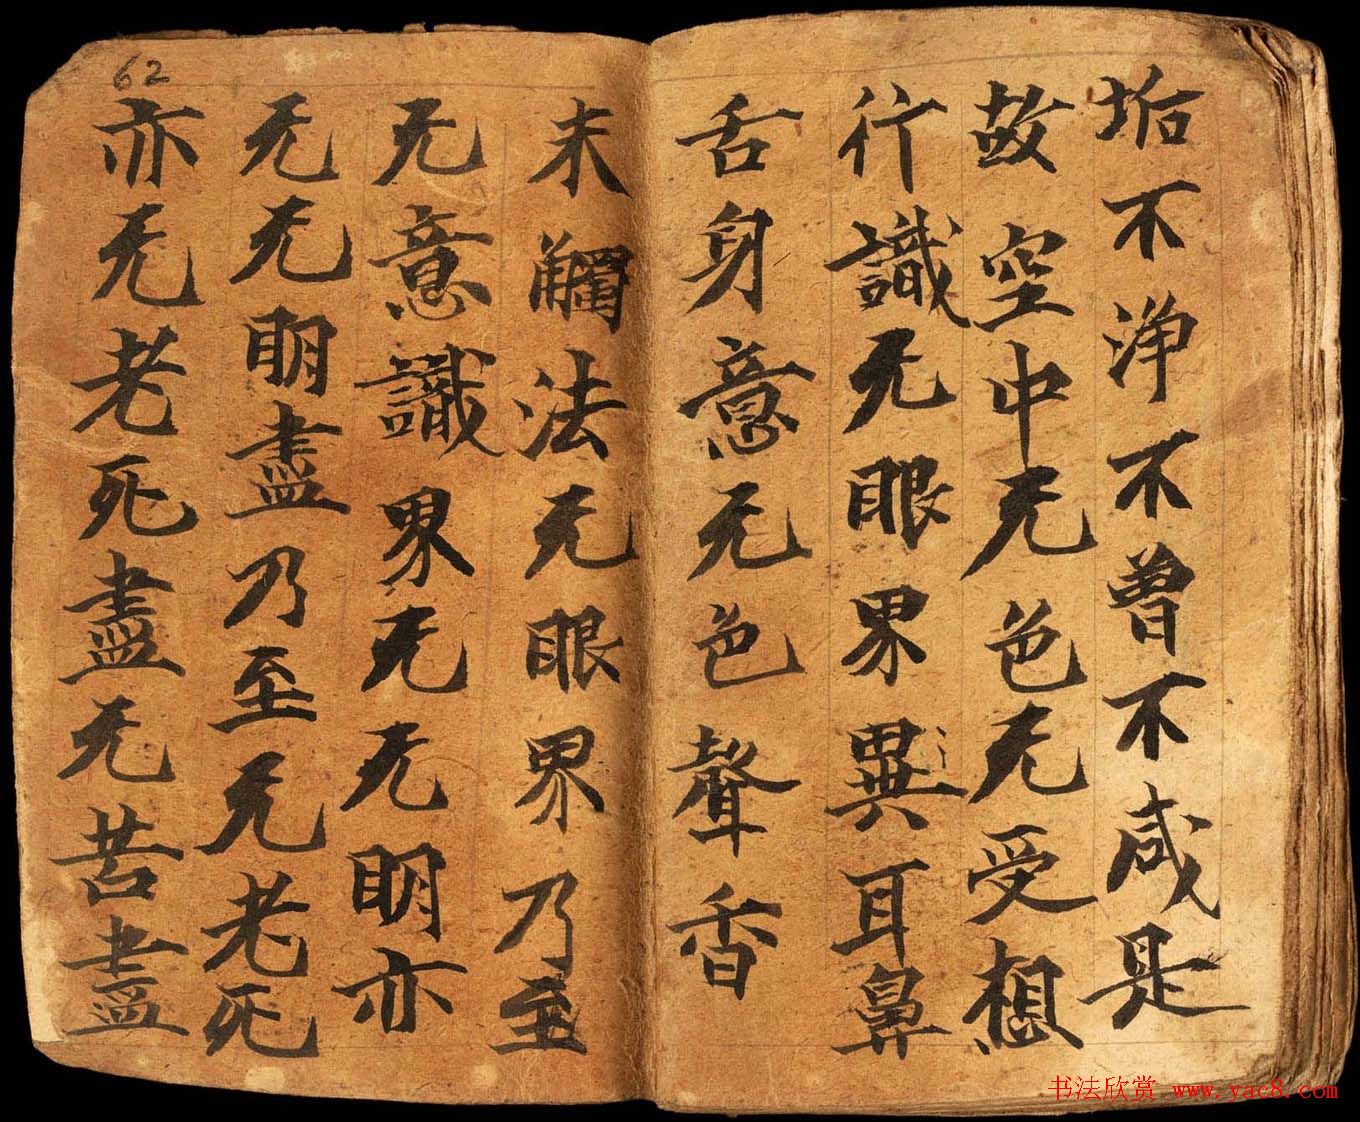 垢不淨不曾不咸是
故空中无色无受想
行識无眼界異耳鼻
舌身意无色聲香
未觸法无眼界乃至
无意識界无无明亦
无无明盡乃至无老死
亦无老死盡无苦盡
62
书法欣赏 www.yac8.com